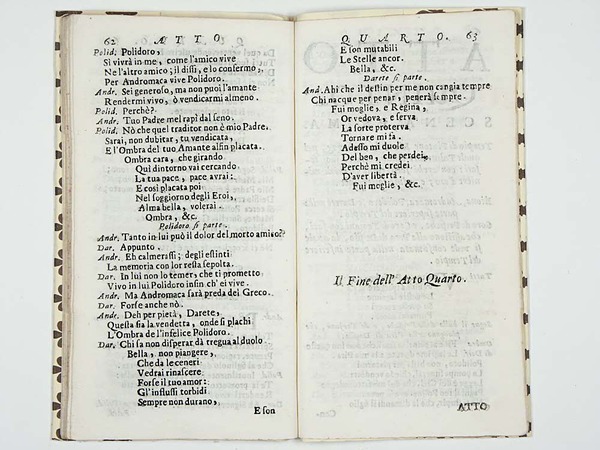 62 ATTO
Polid. Polidoro,
Si vivrà in me, come l'amico vive
Ne l'altro amico; il dissi, e lo confermo,
Per Andromaca vive Polidoro.
Andr. Sei generoso, ma non puoi l'amante
Rendermi vivo, ò vendicarmi almeno.
Polid. Perchè?
Andr. Tuo Padre mel rapì dal seno.
Polid. Nò che quel traditor non è mio Padre.
Sarai, non dubitar, tu vendicata,
E l'Ombra del tuo Amante alfin placata.
Ombra cara, che girando
Qui dintorno vai cercando
La tua pace, pace avrai:
E così placata poi
Nel soggiorno degli Eroi,
Alma bella, volerai.
Ombra, &c.
Polidoro si parte.
Andr. Tanto in lui può il dolor del morto amico?
Dar. Appunto.
Andr. Eh calmerassi; degli estinti
La memoria con lor resta sepolta.
Dar. In lui non lo temer; che ti prometto
Vivo in lui Polidoro infin ch'ei vive.
Andr. Ma Andromaca sarà preda del Greco.
Dar. Forse anche nò.
Andr. Deh per pietà, Darete,
Quella sia la vendetta, onde si plachi
L'Ombra de l'infelice Polidoro.
Dar. Chi sa non disperar dà tregua al duolo
Bella, non piangere,
Che da le ceneri
Vedrai rinascere
Forse il tuo amor:
Gl'influssi torbidi
Sempre non durano,
E son
QUARTO. 63
E son mutabili
Le Stelle ancor.
Bella, &c.
Darete si parte.
And. Ahi che il destin per me non cangia tempre
Chi nacque per penar, penerà sempre.
Fui moglie, e Regina,
Or vedova, e serva
La sorte proterva
Tornare mi fa.
Adesso mi duole
Del ben, che perdei,
Perchè mi credei
D'aver libertà.
Fui moglie, &c.
Il Fine dell'Atto Quarto.
ATTO